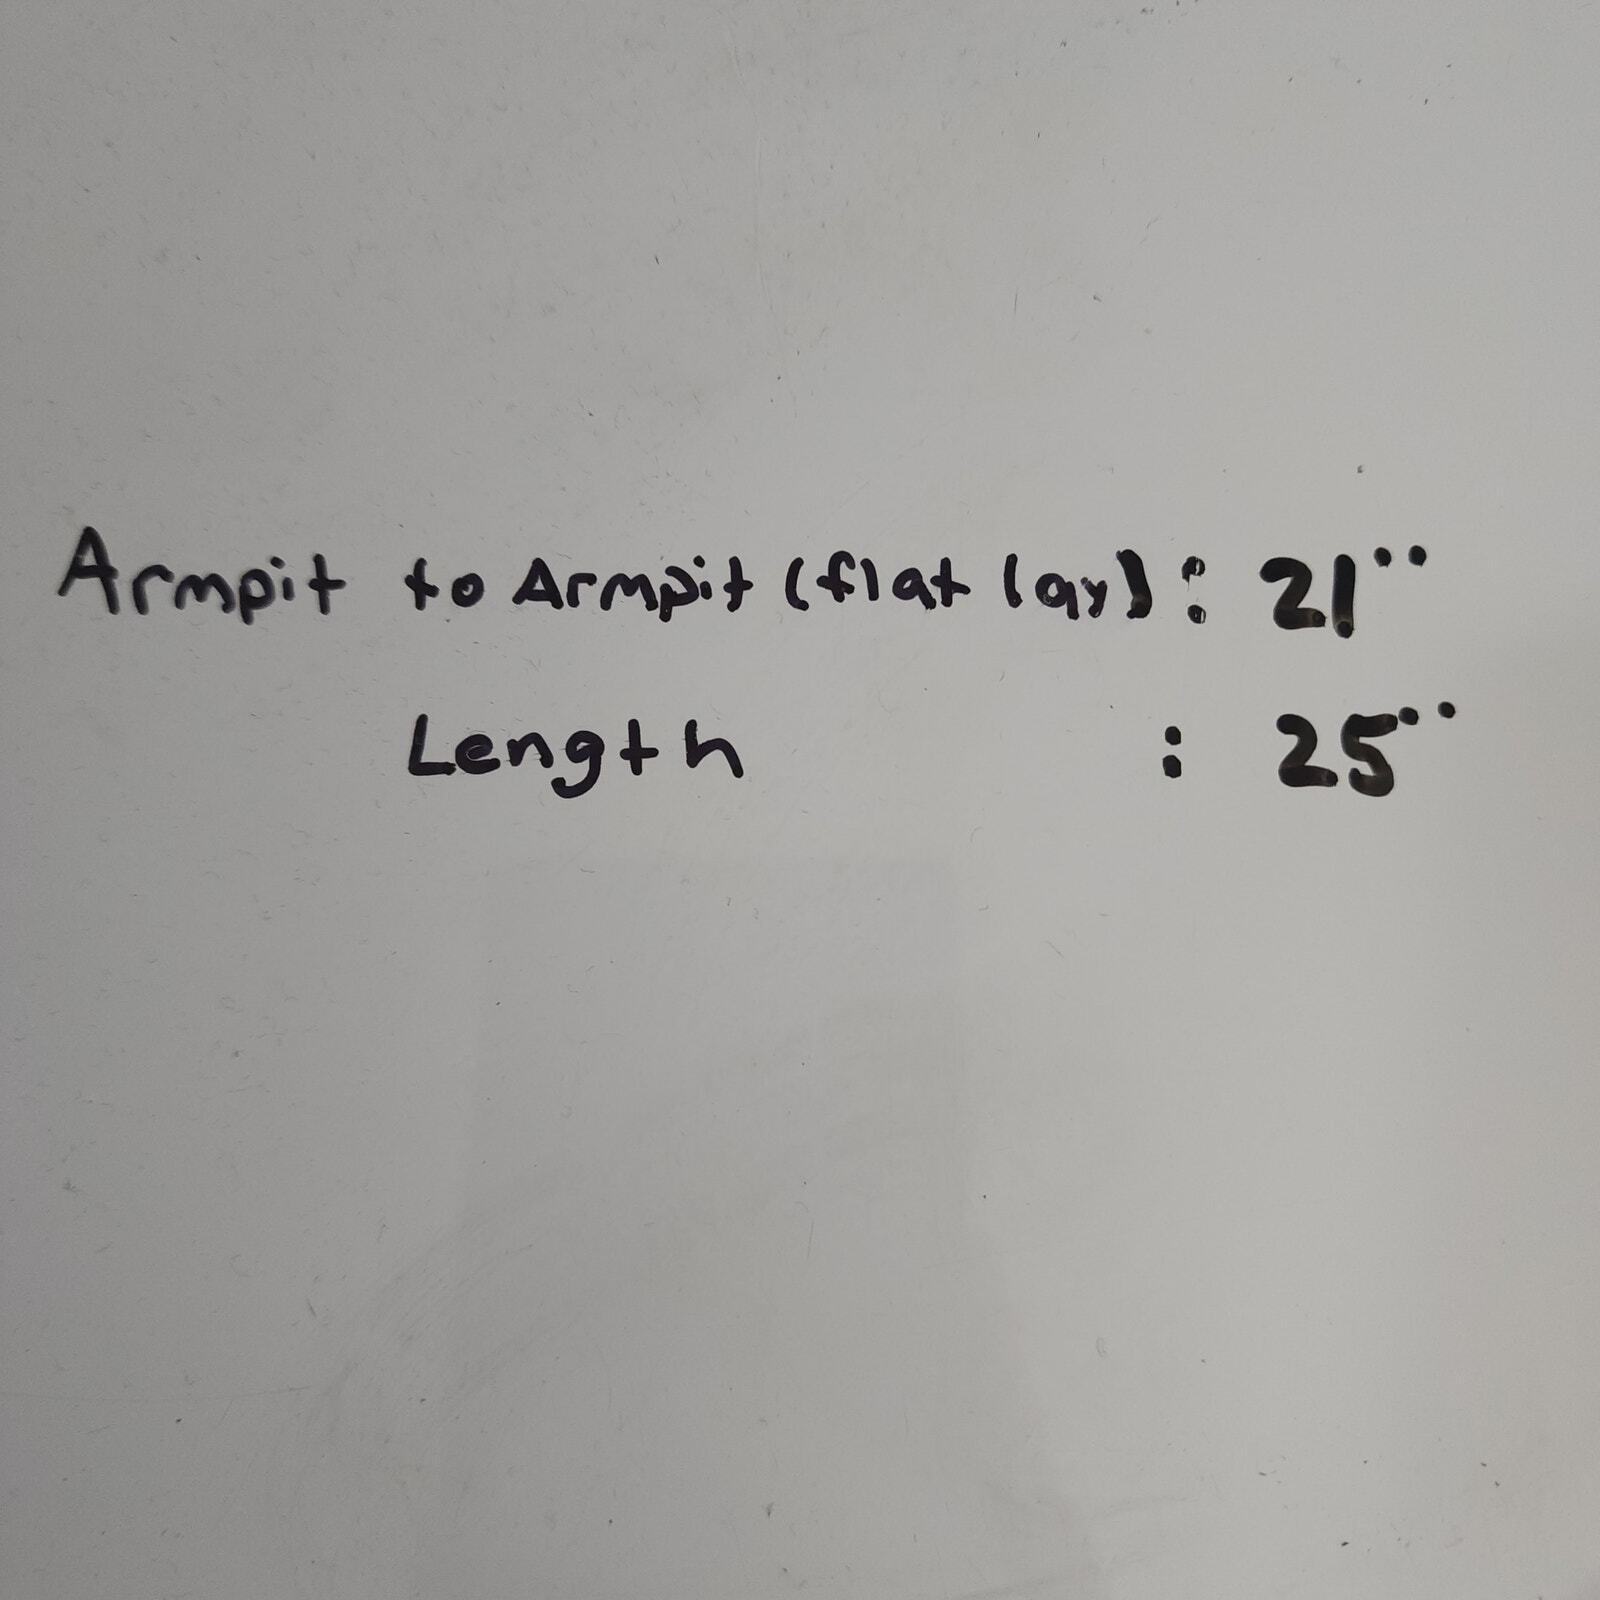 Armpit to Armpit (flat lay): 21"
Length : 25"